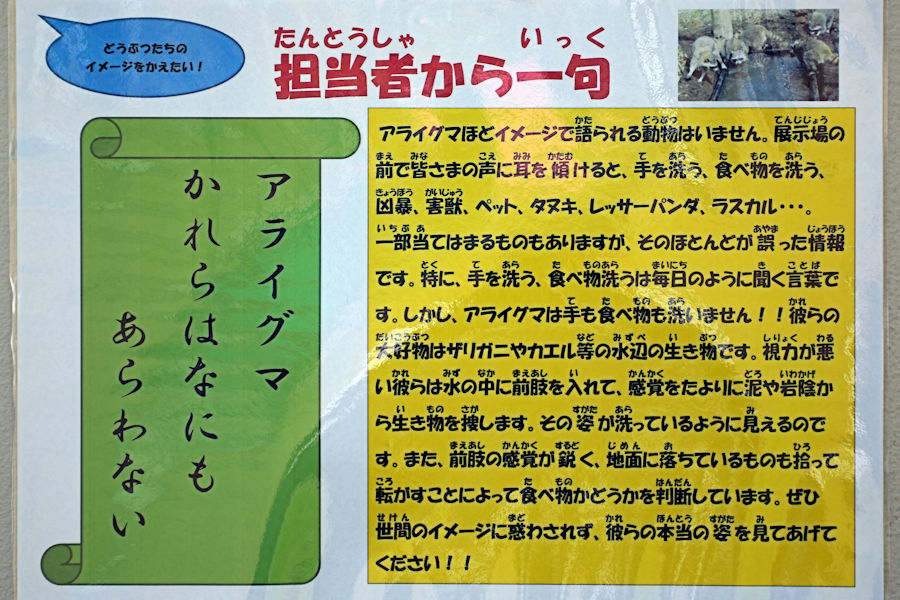 どうぶつたちの
イメージをかえたい！
担当者から一句
アライグマ
かれらはなにも
あらわない
アライグマほどイメージで語られる動物はいません。展示場の
前で皆さまの声に耳を傾けると、手を洗う、食べ物を洗う、
凶暴、害獣、ペット、タヌキ、レッサーパンダ、ラスカル・・・。
一部当てはまるものもありますが、そのほとんどが誤った情報
です。特に、手を洗う、食べ物洗うは毎日のように聞く言葉で
す。しかし、アライグマは手も食べ物も洗いません！！彼らの
大好物はザリガニやカエル等の水辺の生き物です。視力が悪
い彼らは水の中に前肢を入れて、感覚をたよりに泥や岩陰か
ら生き物を捜します。その姿が洗っているように見えるので
す。また、前肢の感覚が鋭く、地面に落ちているものも拾って
転がすことによって食べ物かどうかを判断しています。ぜひ
世間のイメージに惑わされず、彼らの本当の姿を見てあげて
ください！！